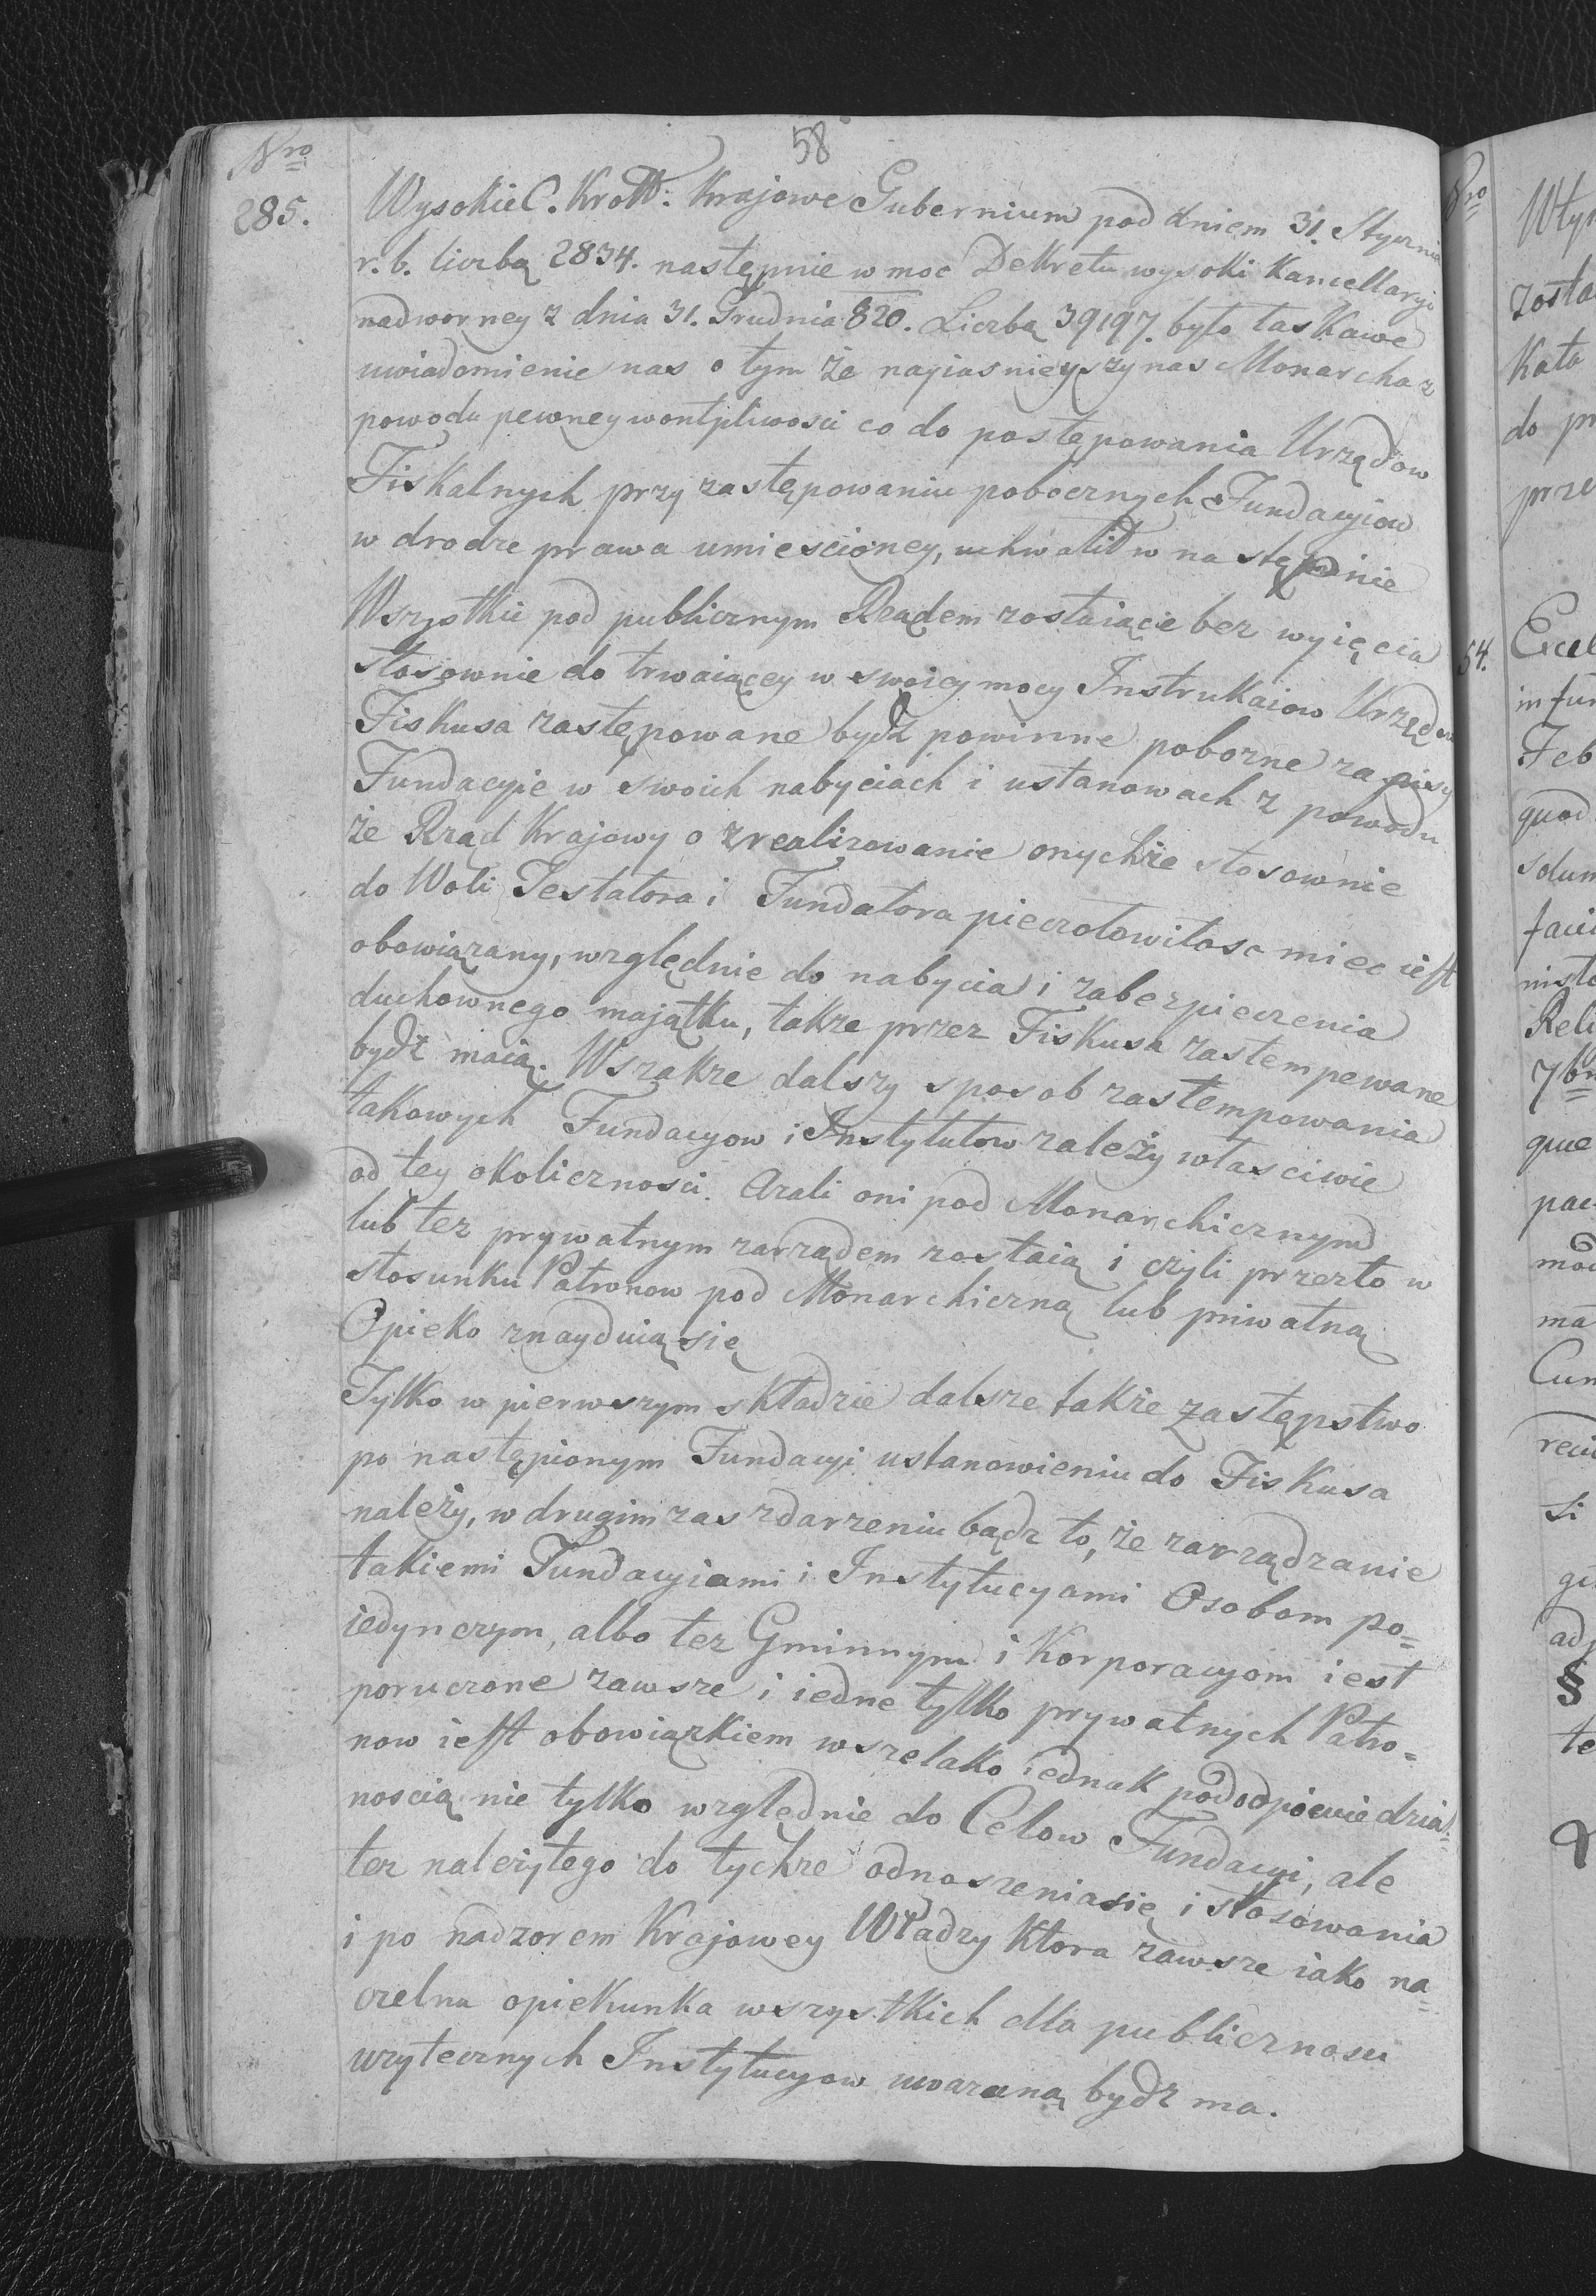 58
Nro
285.
Wysokie C. Krolt: Krajowe Gubernium pod dniem 31. Stycznia
r. b. liczbą 2834. następnie w moc Dekretu wysoki Kancellaryi
nadworney z dnia 31. Grudnia 820. Liczbą 39197. było łaskawe
uwiadomienie nas o tym że nayiasnieyszy nas Monarcha z
powodu pewney wontpliwosci co do postępowania Urzędow
Fiskalnych przy zastępowaniu pobocznych Fundacyiow
w drodze prawa umiescioney, uchwalił w następnie
Wszystkie pod publicznym Rządem zostaiące bez wyięcia
stosownie do trwaiącey w swoiey mocy Instrukciow Urzędow
Fiskusa zastępowane bydź powinne poborne zapisy
Fundacyie w swoich nabyciach i ustanowach z powodu
że Rząd Krajowy o zrealizowanie onychże stosownie
do Woli Testatora i Fundatora pieczołowitosc miec iest
obowiązany, względnie do nabycia i zabezpieczenia
duchownego majątku, także przez Fiskusa zastempewane
bydź maią. Wszakże dalszy sposob zastempowania
takowych Fundacyow i Instytutow zależy własciwie
od tey okolicznosci. Azali oni pod Monarchicznym
lub tez prywatnym zarządem zostaią i czyli przezto w
stosunku Patronow pod Monarchiczną lub priwatną
Opieko znayduią się
Tylko w pierwszym składzie dalsze także zastępstwo
po nastąpionym Fundacyi ustanowieniu do Fiskusa
należy, w drugim zas zdarzeniu bądz to, że zarządzanie
takiemi Fundacyiami i Instytucyami Osobom po=
iedynczym, albo tez Gminnym i Korporacyom iest
poruczone zawsze i iedne tylko prywatnych Patro=
now iest obowiązkiem wszelako iednak pod odpowiedzial=
noscią nie tylko względnie do Celow Fundacyi, ale
tez należytego do tychże odnoszenia się i stosowania
i po nadzorem Krajowey Władzy ktora zawsze iako na=
czelna opiekunka wszystkich dla publicznosci
użytecznych Instytucyow uwazaną bydź ma.
Nro
54.
zosta
kato
do pr
prze
Excel
in fun
Feb
quod
solum
Reli
7br
que
pac
ma
Cum
Si
§
te